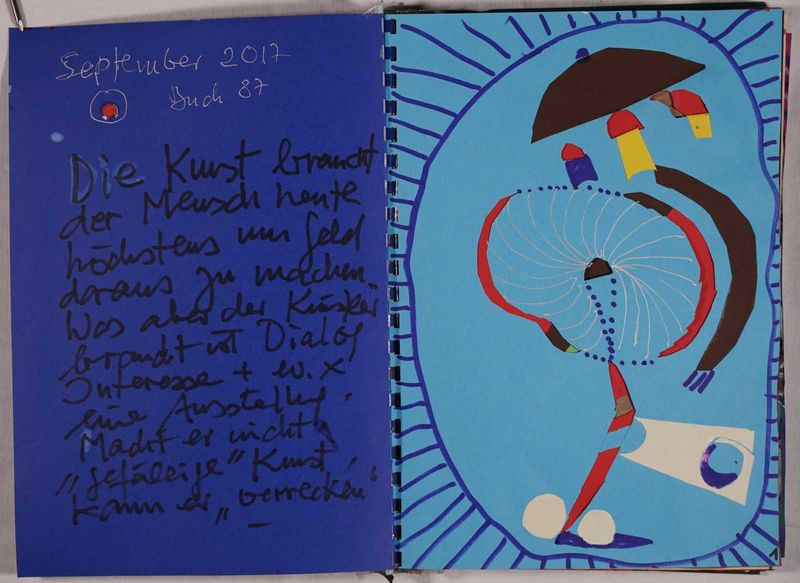 September 2017
Buch 87
Die Kunst braucht
der Mensch heute
höchstens um Geld
daraus zu machen.
Was aber der Künstler
braucht ist Dialog
Interesse + ev. x
eine Ausstellung.
Macht er nicht
„gefällige" Kunst,
kann er „verrecken"
1